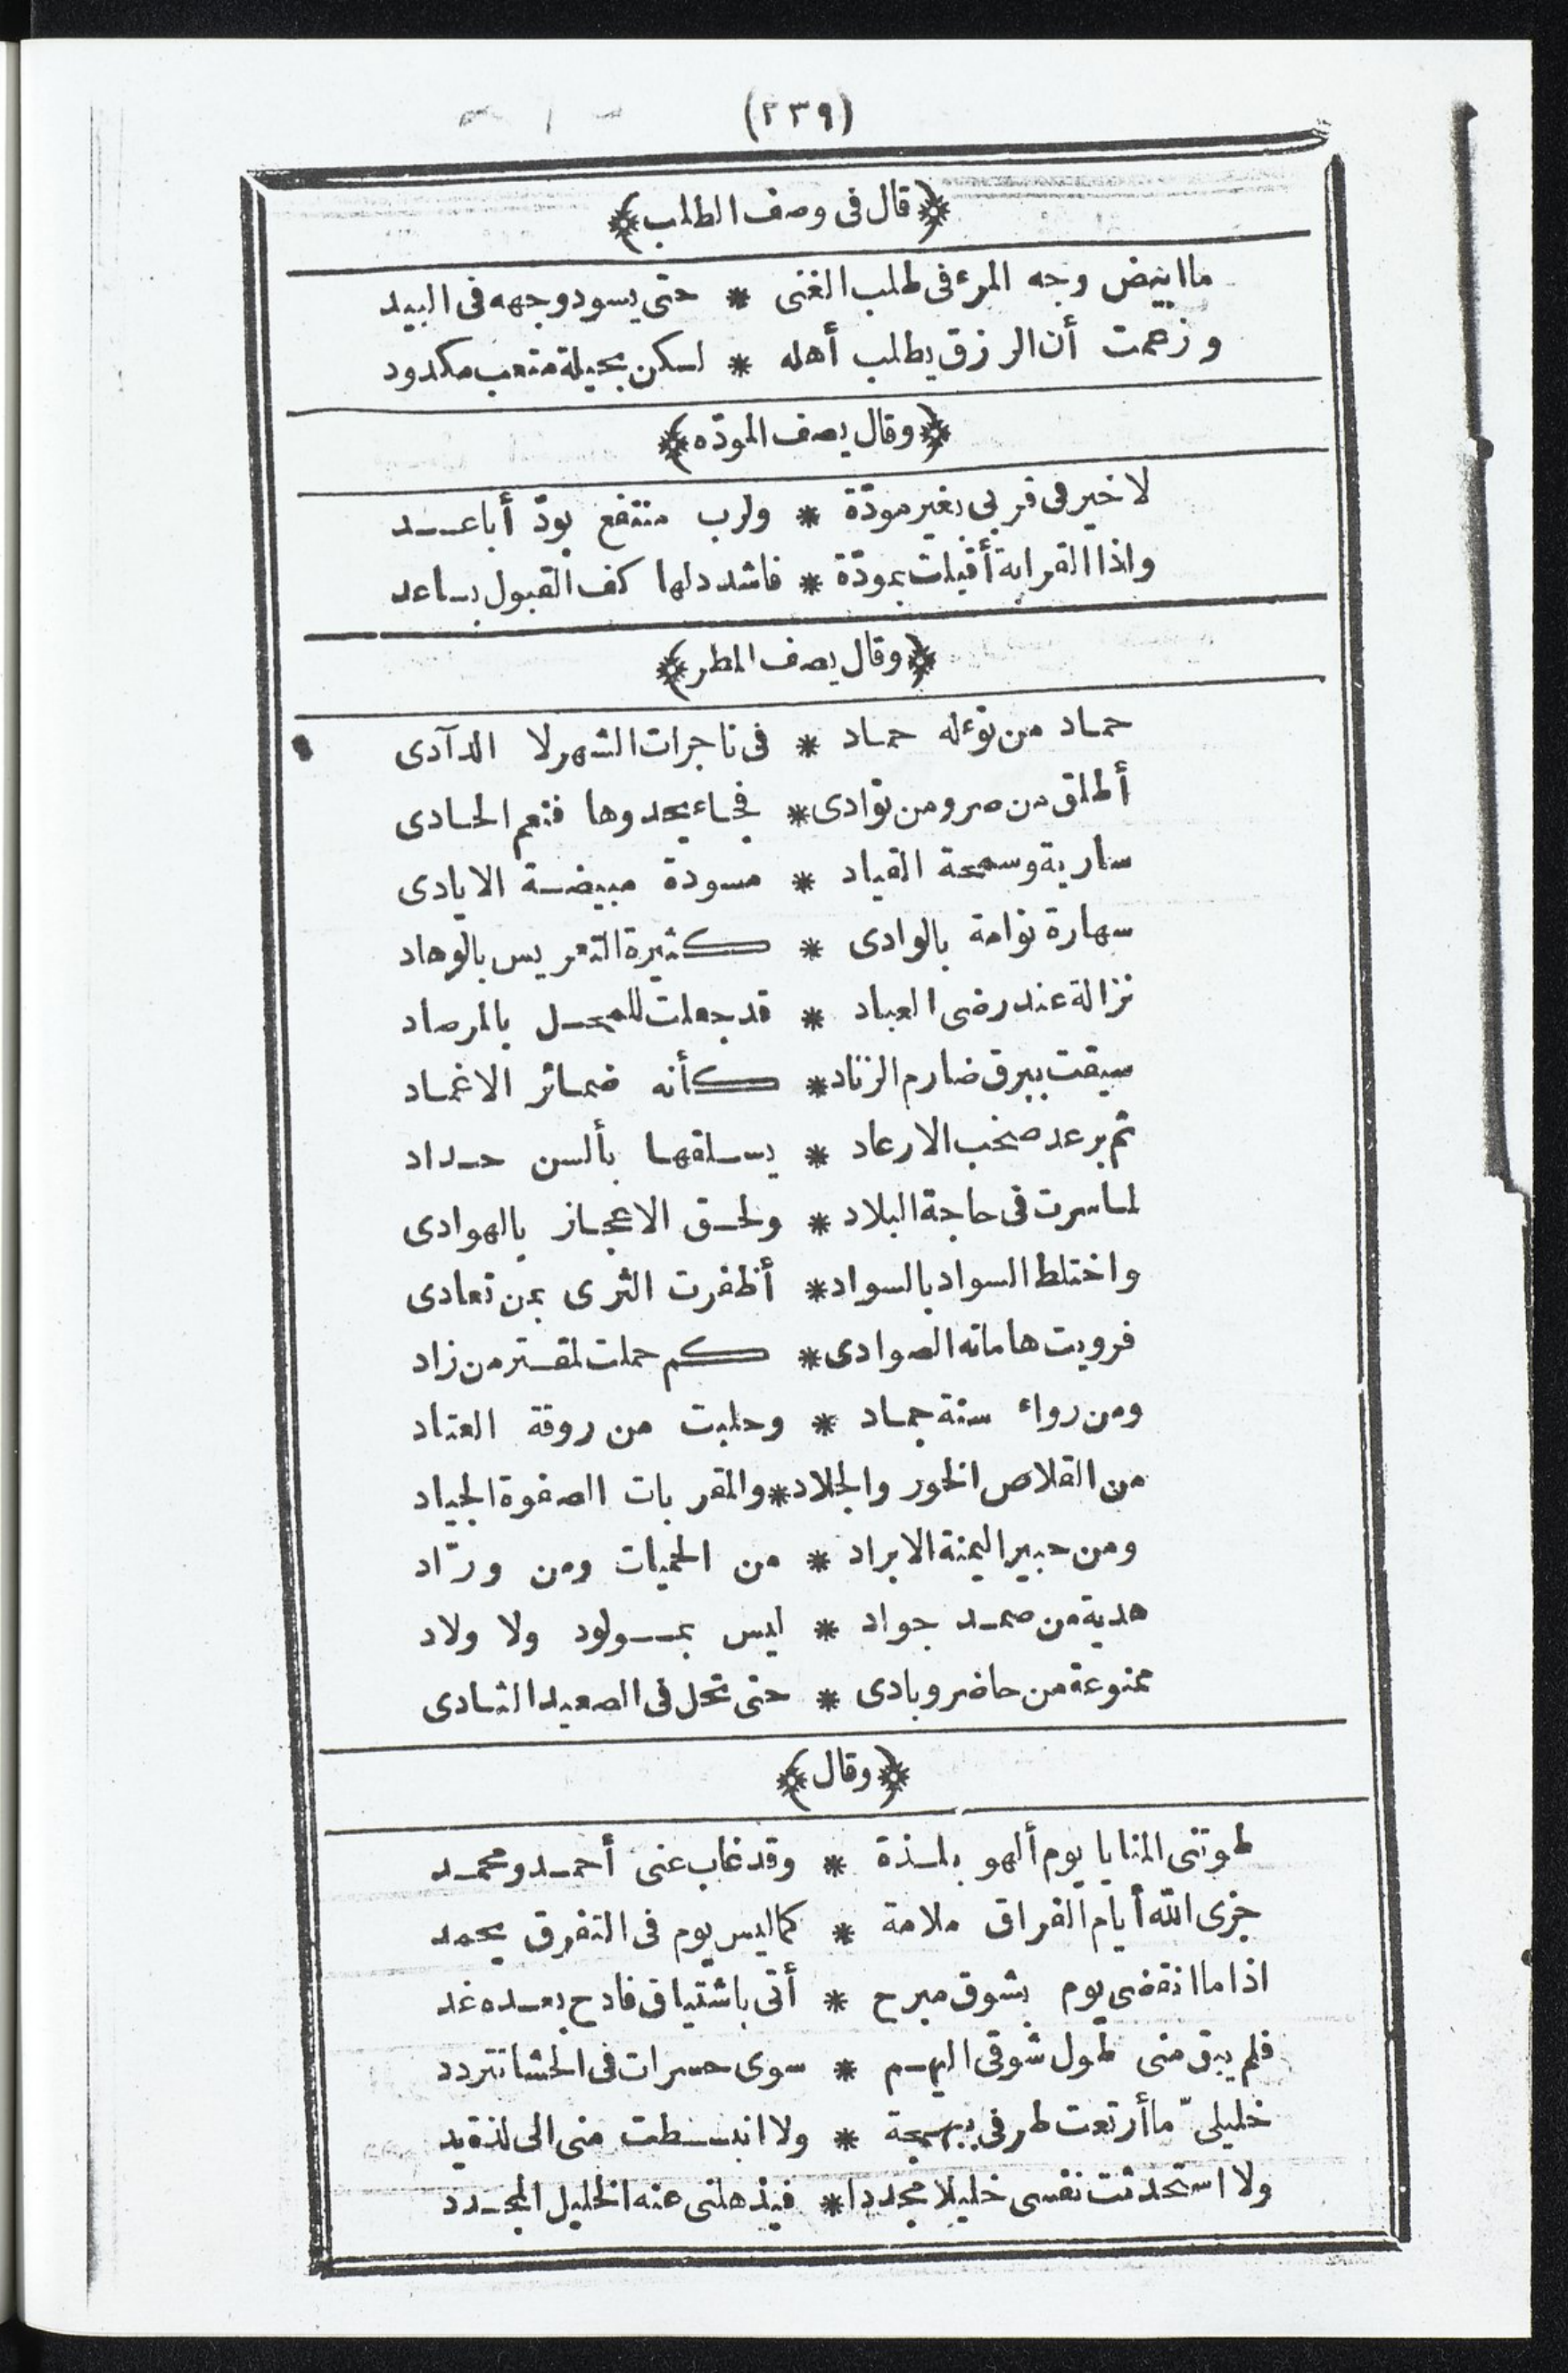 (٢٣٩)
﴿قال فى وصف الطلب﴾
ما ابيض وجه المرء فى طلب الغنى * حتى يسود وجهه فى البيد
وزعمت أن الرزق يطلب أهله * لكن بحيلة متعب مكدود
﴿وقال يصف المودّه﴾
لا خير فى قربى بغير مودّة * ولرب منتفع بودّ أباعد
واذا القرابة أقبلت بمودّة * فاشدد لها كف القبول بساعد
﴿وقال يصف المطر﴾
حماد من نوء له حماد * فى ناجرات الشهر لا الدآدى
أطلق من صر ومن توادى * فجاء يحدوها فنعم الحادى
سارية وسمحة القياد * مسودة مبيضة الايادى
سهارة نوامة بالوادى * كثيرة التعريس بالوهاد
نزالة عند رضى العباد * قد جعلت للمحل بالمرصاد
سيقت ببرق ضارم الزناد * كأنه ضمائر الاغماد
ثم برعد صخب الارعاد * يسلقها بألسن حداد
لما سرت فى حاجة البلاد * ولحق الاعجاز بالهوادى
واختلط السواد بالسواد * أظفرت الثرى بمن تعادى
فرويت هاماته الصوادى * كم حملت لمقتر من زاد
ومن رواء سنة جماد * وحلبت من روقة العتاد
من القلاص الخور والجلاد * والمقربات الصفوة الجياد
ومن حبير اليمنة الابراد * من الحميات ومن ورّاد
هدية من صمد جواد * ليس بمولود ولا ولاد
ممنوعة من حاضر وبادى * حتى تحل فى الصعيد الثادى
﴿وقال﴾
طوتنى المنايا يوم ألهو بلذة * وقد غاب عنى أحمد ومحمد
جزى الله أيام الفراق ملامة * كما ليس يوم فى التفرق يحمد
اذا ما انقضى يوم بشوق مبرح * أتى باشتياق فادح بعده غد
فلم يبق منى طول شوقى اليهم * سوى حسرات فى الحشا تتردد
خليلىّ ما أرتعت طرفى ببهجة * ولا انبسطت منى الى لذة يد
ولا استحدثت نفسى خليلا مجددا * فيذهلنى عنه الخليل المجدد